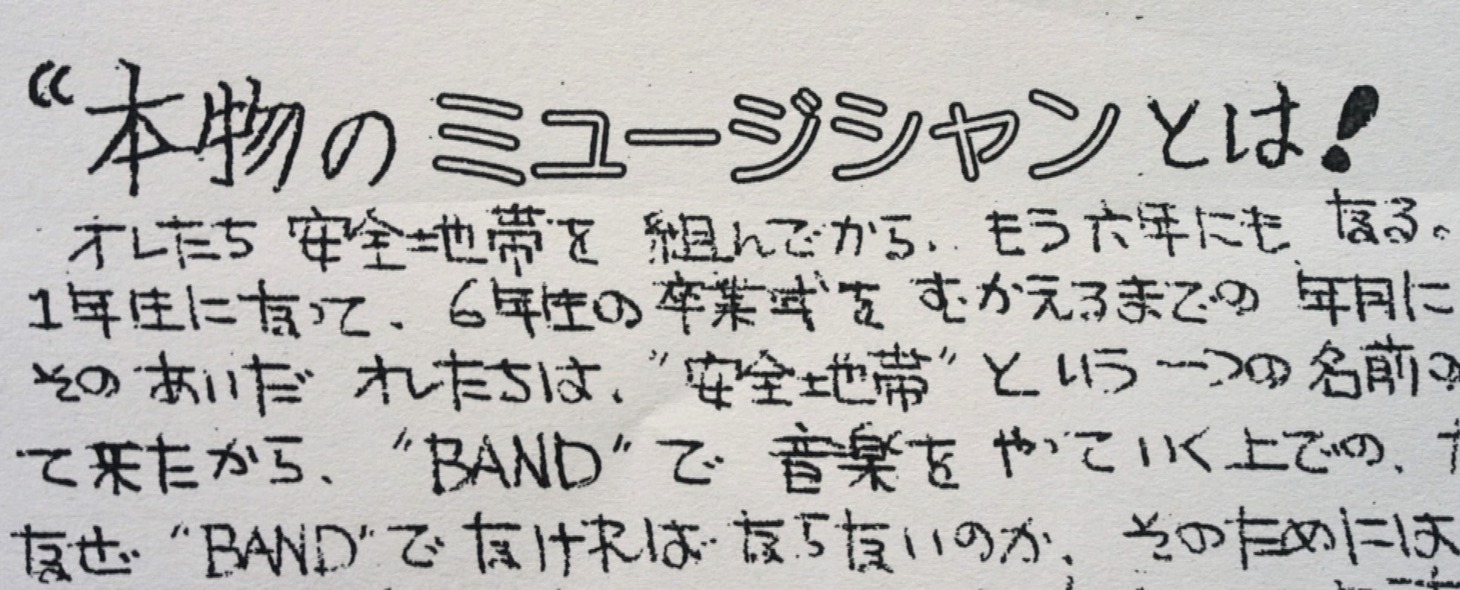 “本物のミュージシャンとは!
オレたち 安全地帯を 組んでから、もう六年にも なる。
1年生になって、6年生の卒業式を むかえるまでの 年月に
その あいだ オレたちは、"安全地帯" という 一つの 名前の
て来たから、"BAND" で 音楽を やっていく上での、
なぜ "BAND" で なければ ならないのか、そのためには